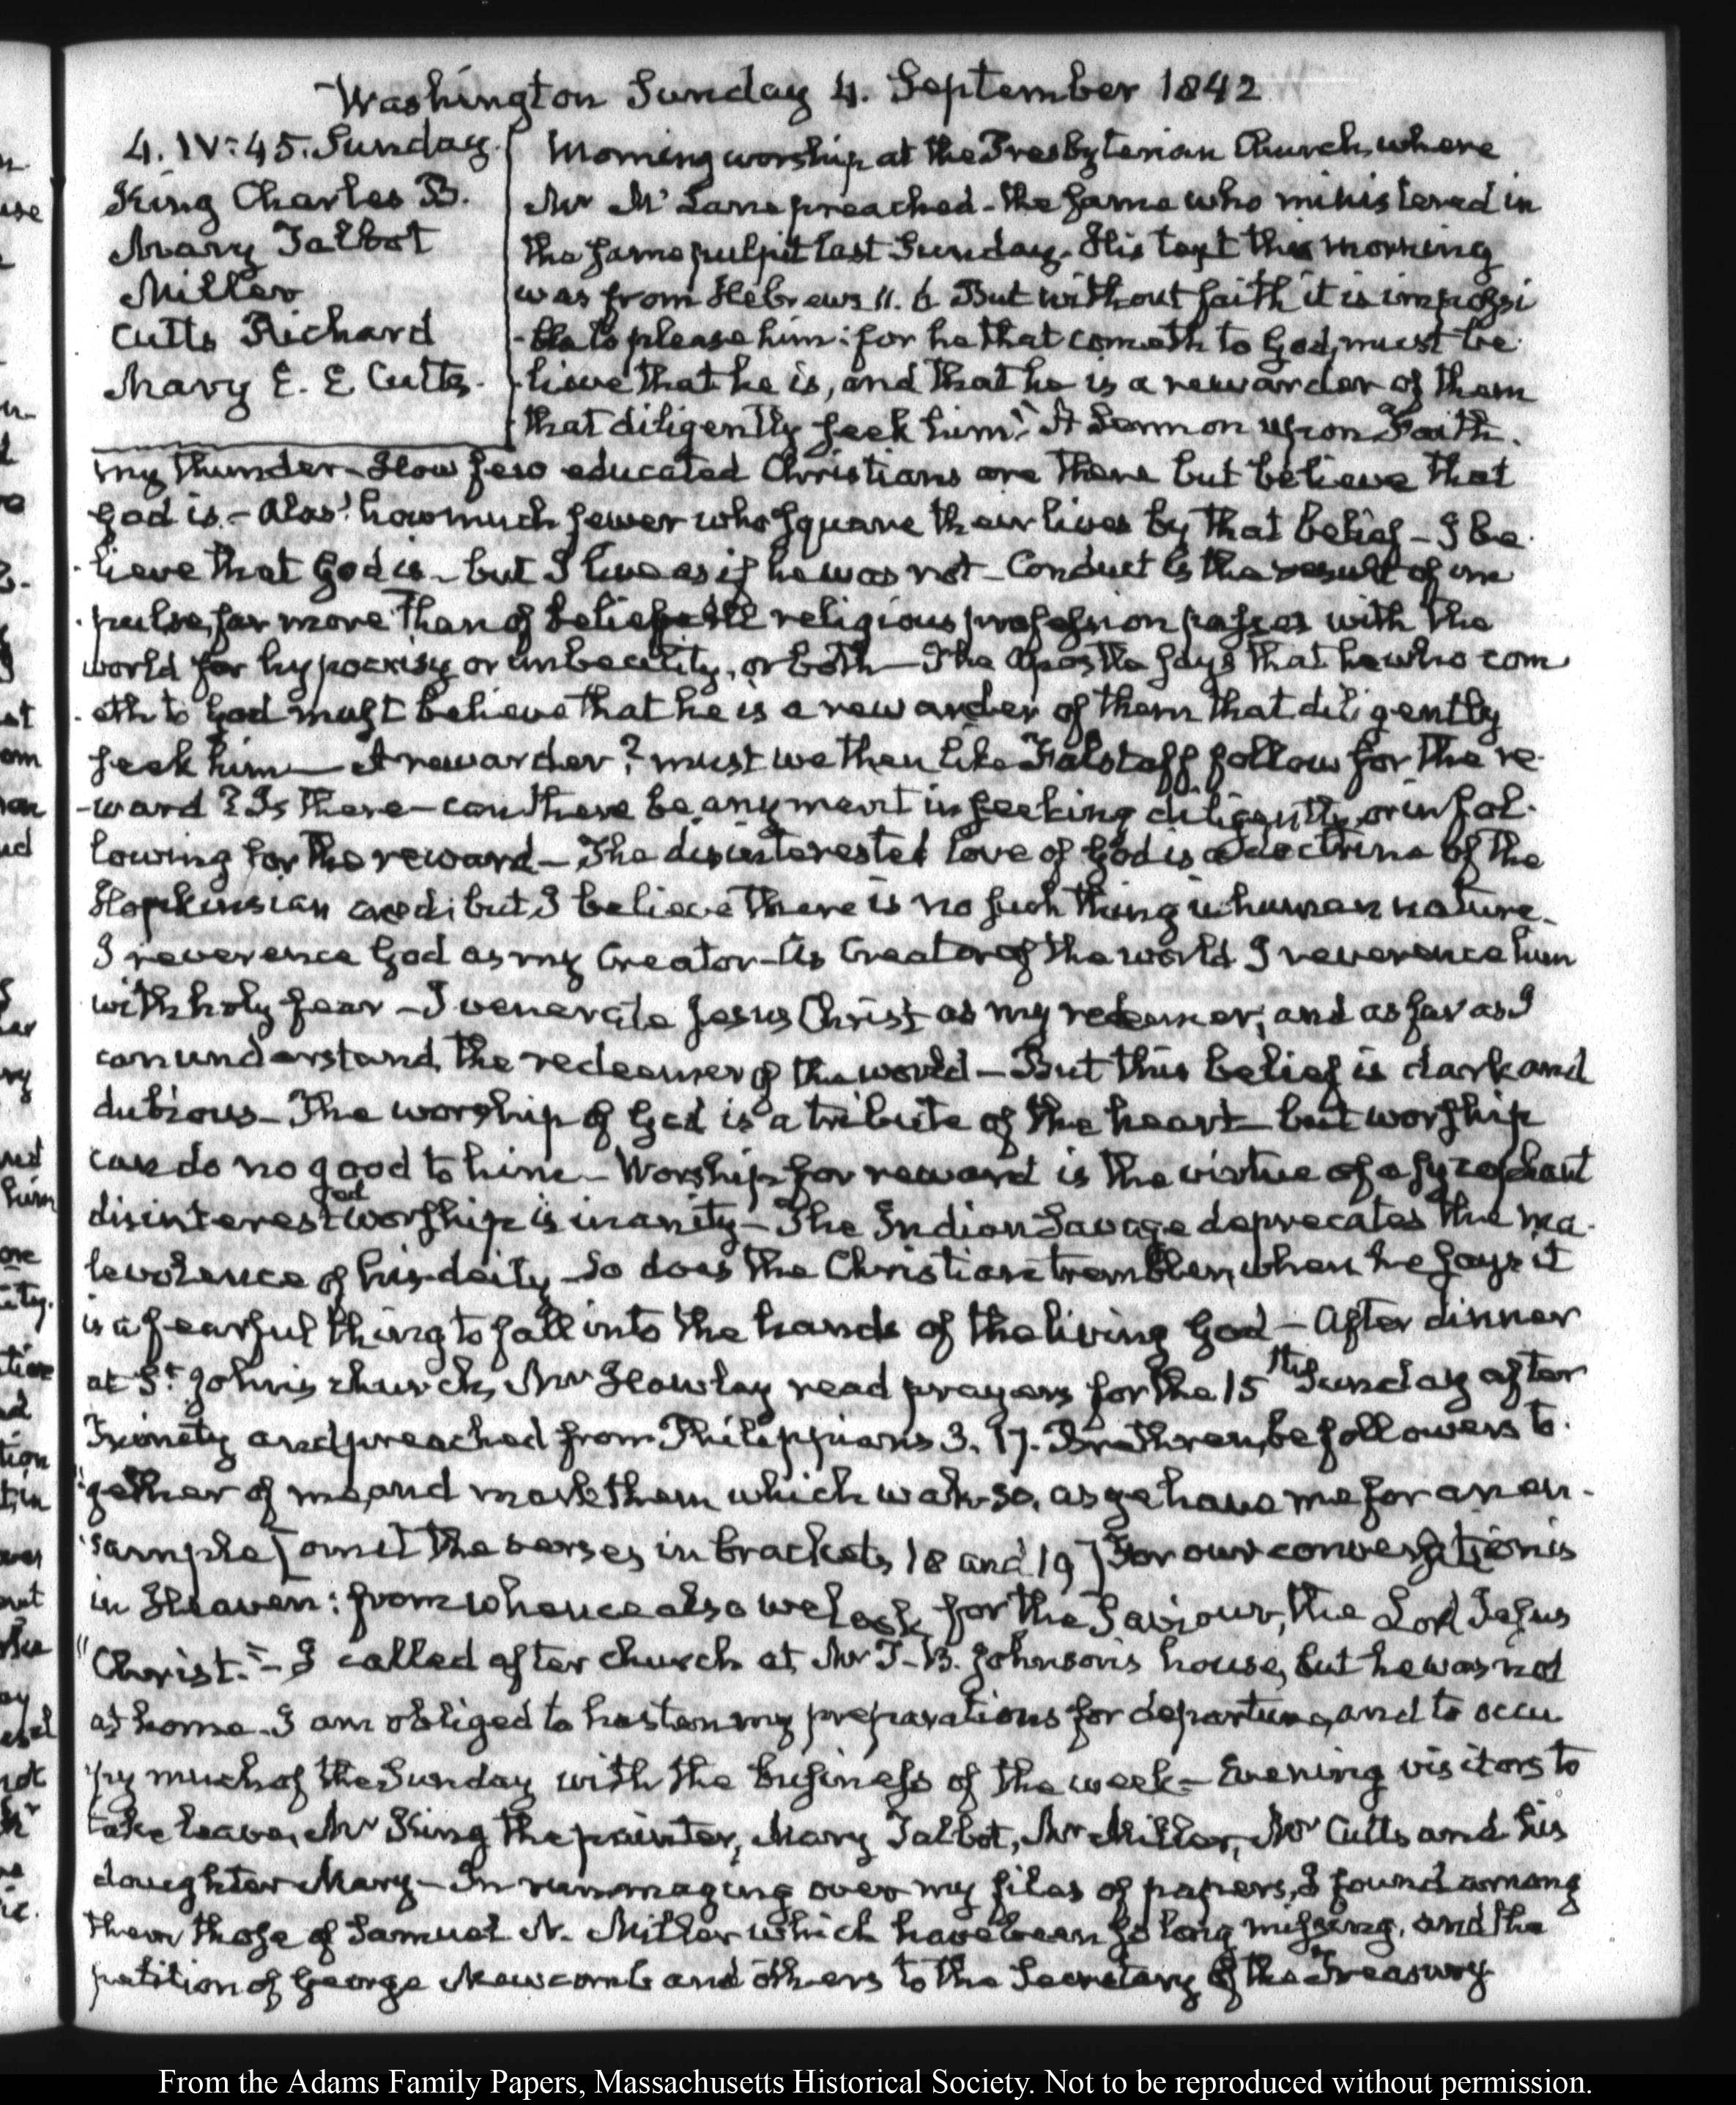 Washington Sunday 4. September 1842
4. IV: 45. Sunday.
King Charles B.
Mary Talbot
Miller
Cutts Richard
Mary E. E Cutts.
Morning worship at the Presbyterian Church, where
Mr McLane preached - the same who ministered in
the same pulpit last Sunday. His text this morning
was from Hebrews 11. 6 But without faith it is impossi
-ble to please him: for he that cometh to God, must be
-lieve that he is, and that he is a rewarder of them
that diligently seek him." A Sermon upon Faith.
my thunder - How few educated Christians are there but believe that
God is. - Alas! how much fewer who square their lives by that belief - I be-
-lieve that God is - but I live as if he was not - Conduct is the result of im
-pulse, far more than of belief religious profession passes with the
world for hypocrisy or imbecility, or both - The Apostle says that he who com
-eth to God must believe that he is a rewarder of them that diligently
seek him - A rewarder? must we then like Falstaff follow for the re-
-ward? Is there - can there be, any merit in seeking diligently, or in fol-
lowing for the reward - The disinterested love of God is a doctrine of the
Hopkinsian creed; but I believe there is no such thing in human nature.
I reverence God as my Creator - As Creator of the world I reverence him
with holy fear - I venerate Jesus Christ as my redeemer; and as far as I
can understand, the redeemer of the world - But this belief is dark and
dubious - The worship of God is a tribute of the heart - but worship
can do no good to him - Worship for reward is the virtue of a sycophant
disinterested worship is inanity - The Indian Savage deprecates the ma-
levolence of his deity - so does the Christian tremble, when he says it
is a fearful thing to fall into the hands of the living God - After dinner
at St. John's church, Mr Hawley read prayers for the 15th Sunday after
Trinity and preached from Philippians 3. 17. Brethren, be followers to-
"gether of me, and mark them which walk so, as ye have me for an en-
"sample [omit the verses in brackets 18 and 19] For our conversation is
in Heaven: from whence also we look for the Saviour, the Lord Jesus
"Christ." - I called after church at Mr T. B. Johnson's house, but he was not
at home. I am obliged to hasten my preparations for departure, and to occu
-py much of the Sunday with the business of the week - Evening visitors to
take leave, Mr King the painter, Mary Talbot, Mr Miller, Mr Cutts and his
daughter Mary - In rummaging over my files of papers, I found among
them those of Samuel N. Miller which have been so long missing, and the
petition of George Newcomb and others to the Secretary of the Treasury
From the Adams Family Papers, Massachusetts Historical Society. Not to be reproduced without permission.